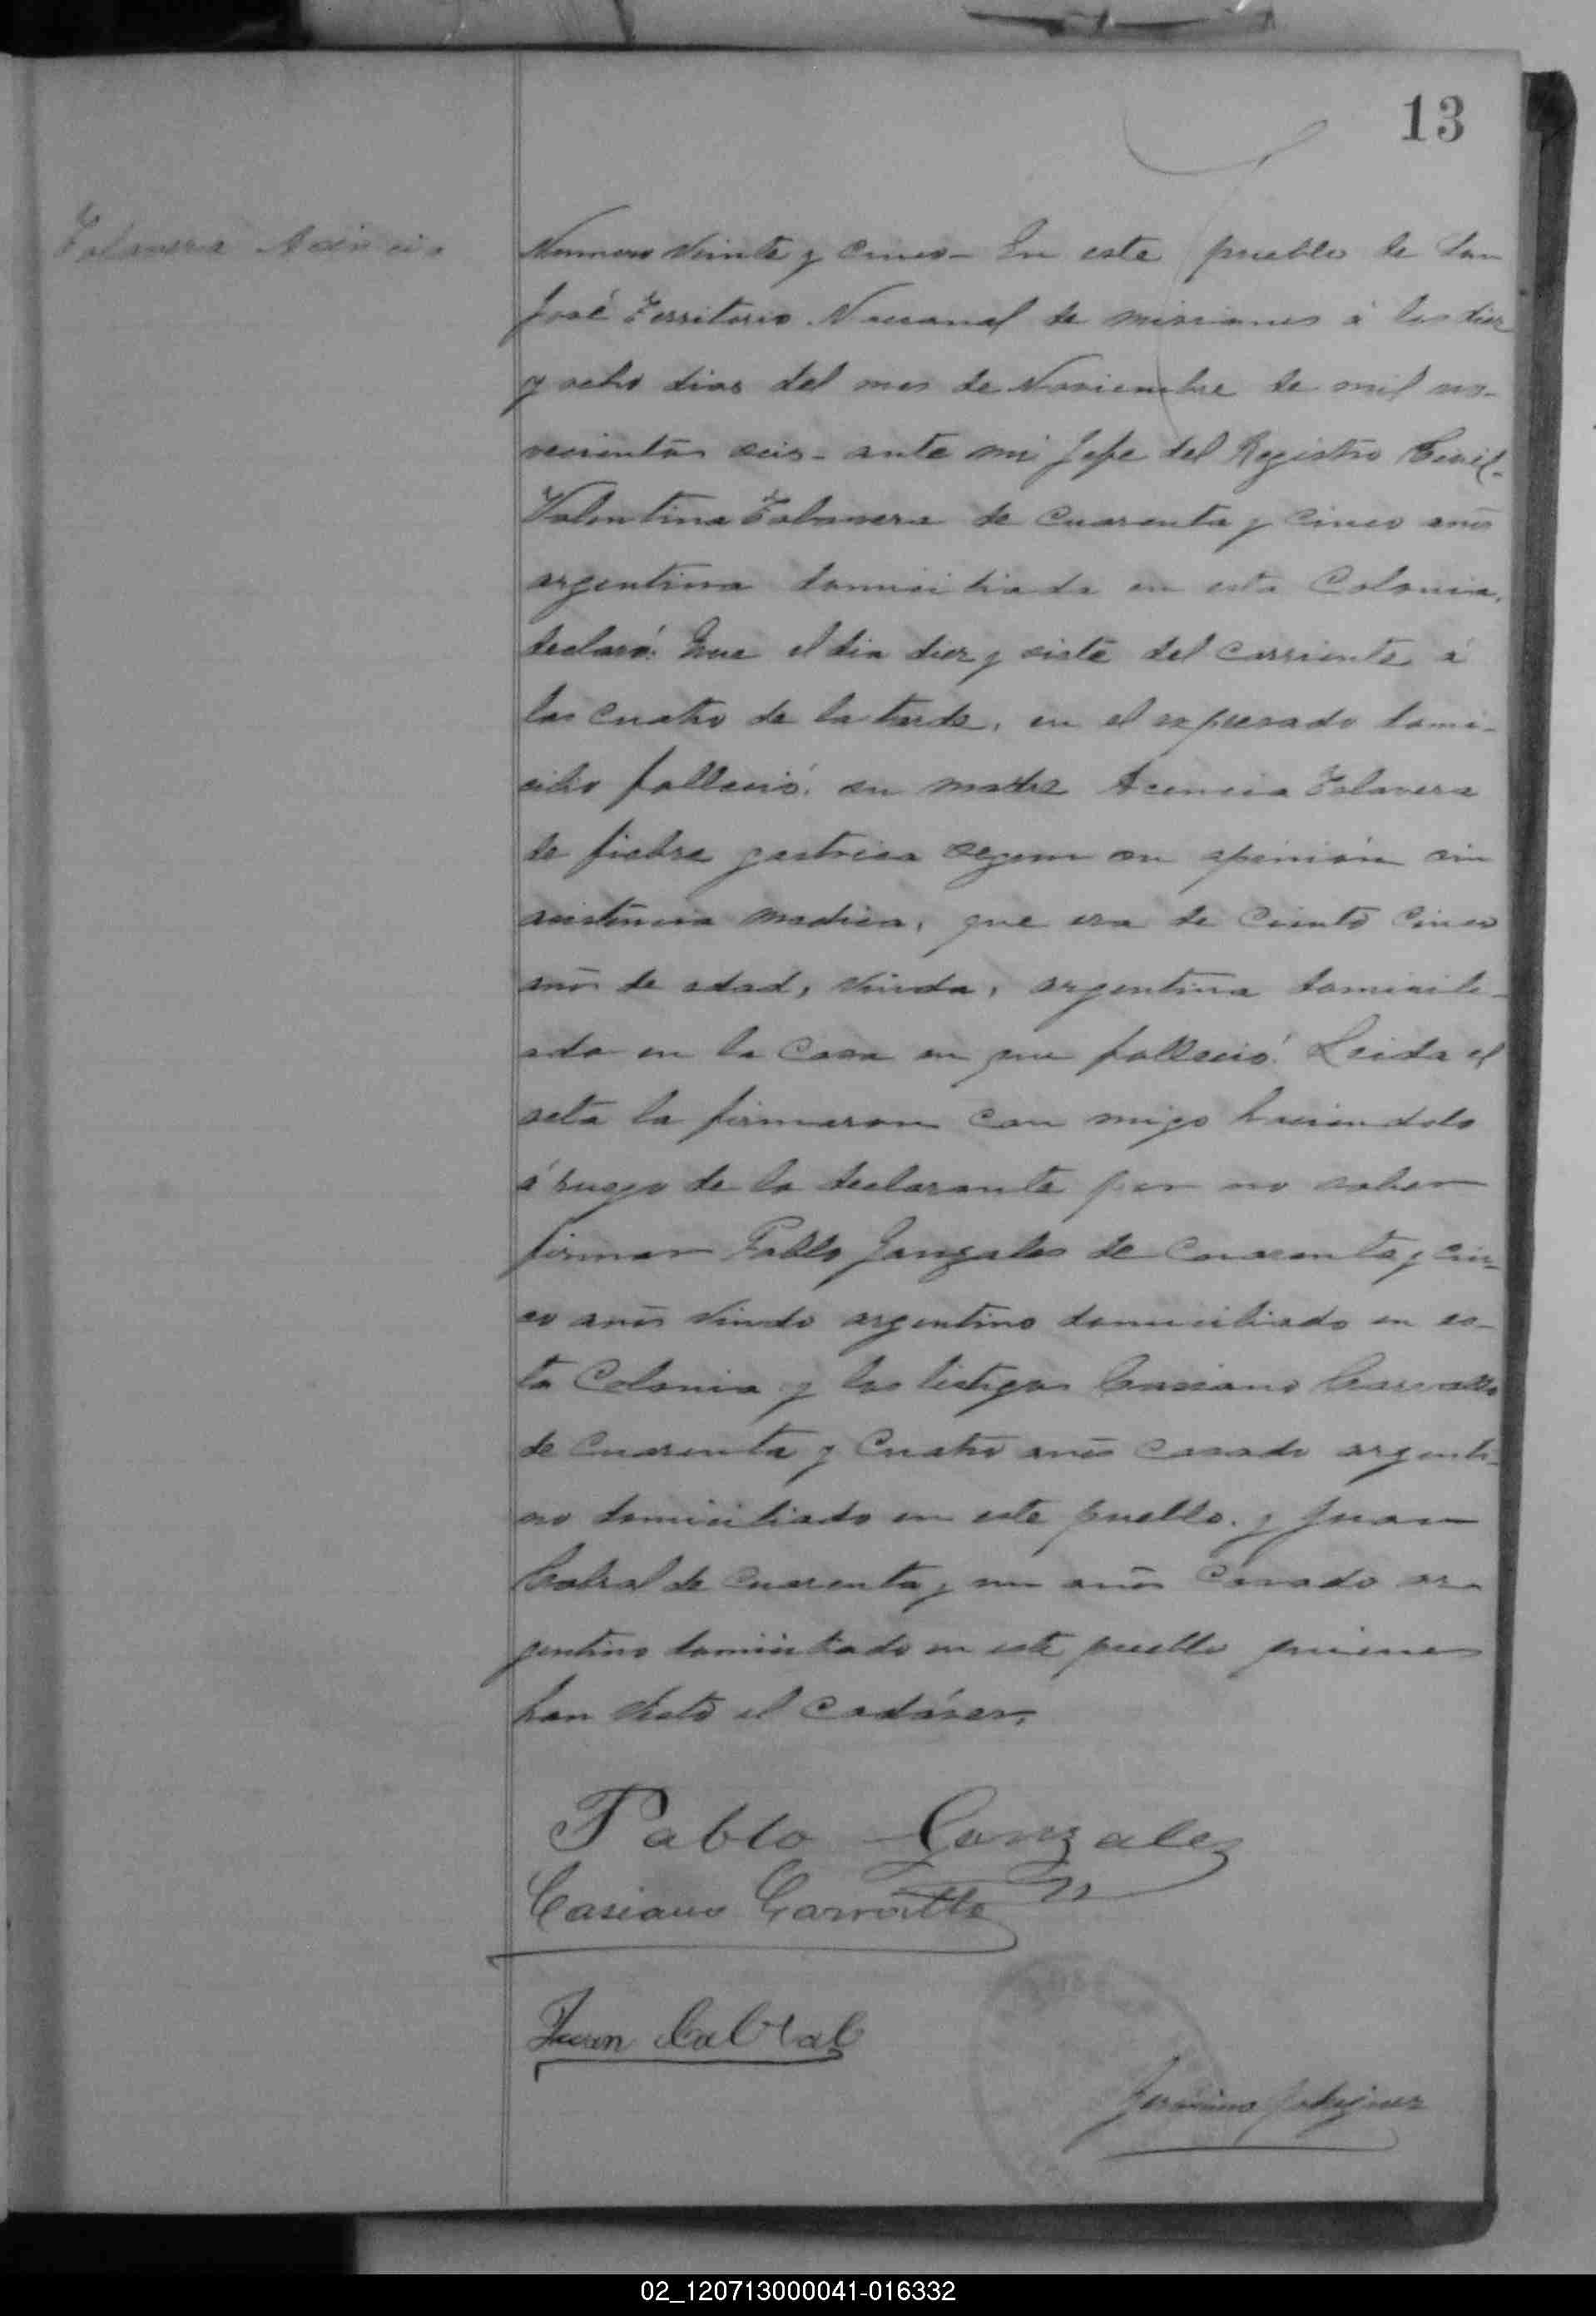 13
Talavera Acencia
Numero veinte y cinco - En este pueblo de San
José Territorio Nacional de misiones á los diez
y ocho dias del mes de Noviembre de mil no-
vecientos seis - ante mi Jefe del Registro Civil -
Valentina Talavera de cuarenta y cinco años
argentina domiciliada en esta Colonia,
declaró: Que el dia diez y siete del corriente á
las cuatro de la tarde, en el expresado domi-
cilio falleció su madre Acencia Talavera
de fiebre gastrica segun su opinión sin
asistencia medica, que era de ciento cinco
años de edad, viuda, argentina domicili-
ada en la casa en que falleció. Leida el
acta la firmaron con migo haciendolo
á ruego de la declarante por no saber
firmar Pablo Gonzales de cuarenta y cin-
co años viudo argentino domiciliado en es-
ta Colonia y los testigos Casiano Carvallo
de cuarenta y cuatro años casado argenti-
no domiciliado en este pueblo. y Juan
Cabral de cuarenta y un años casado ar-
gentino domiciliado en este pueblo quienes
han visto el cadáver.
Pablo Gonzalez
Casiano Carvallo
Juan Cabral
Gerónimo Rodriguez
02_120713000041-016332